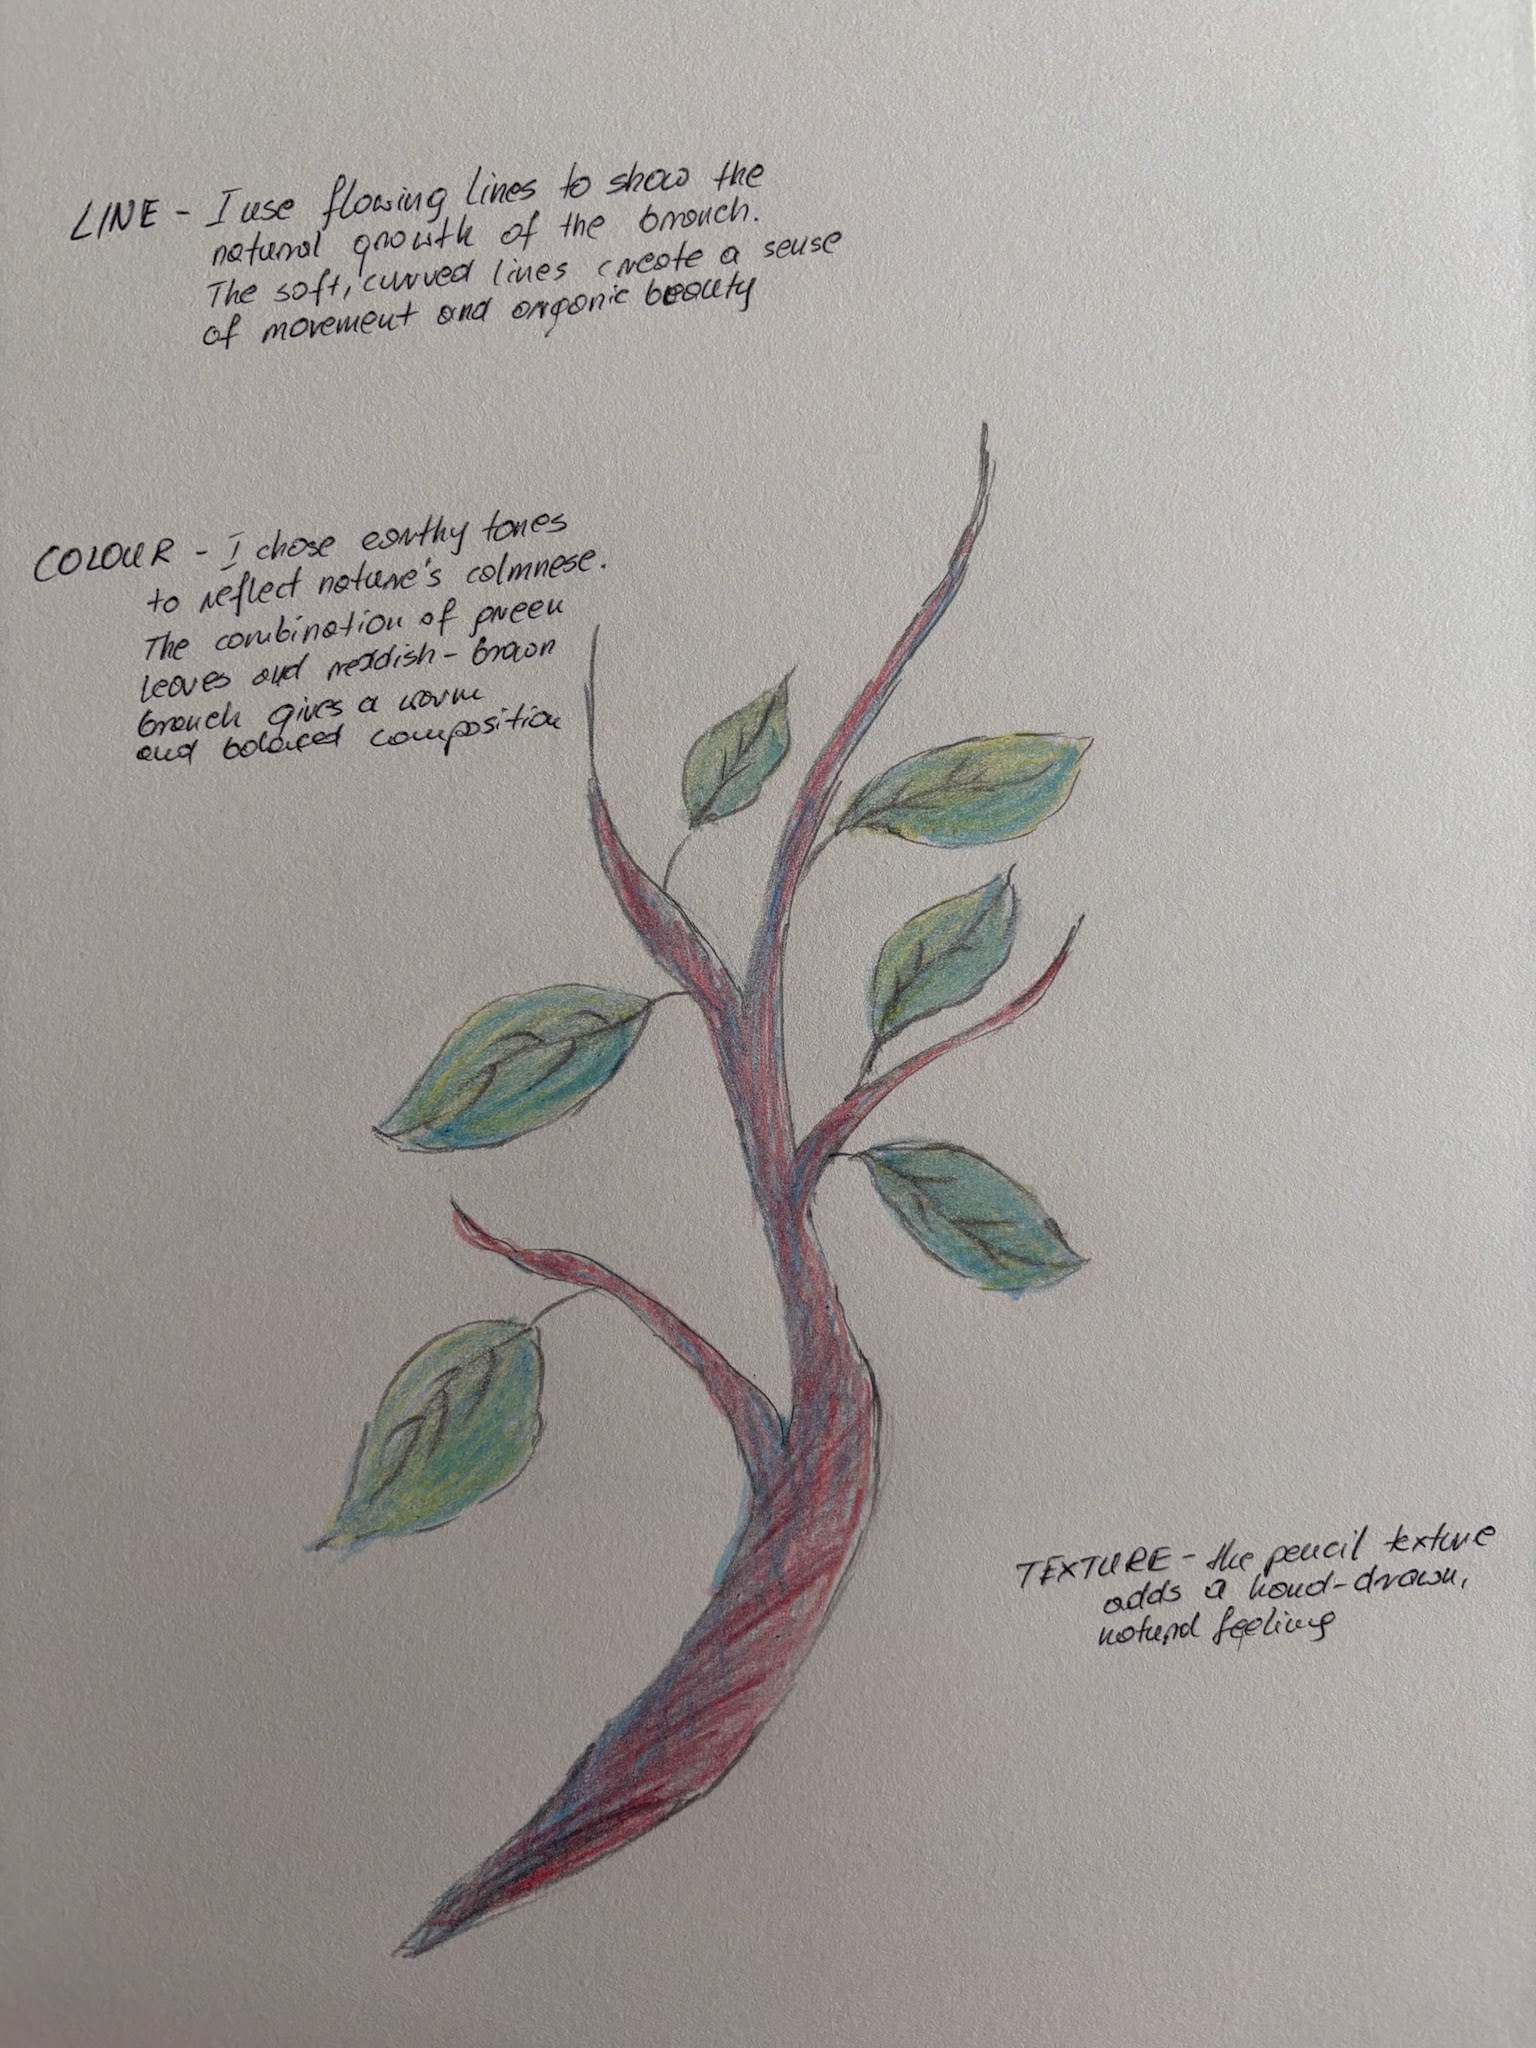 LINE - I use flowing lines to show the
natural growth of the branch.
The soft, curved lines create a sense
of movement and organic beauty
COLOUR - I chose earthy tones
to reflect nature's calmnese.
The combination of green
leaves and reddish-brown
branch gives a warm
and balaced composition
TEXTURE - the pencil texture
adds a hand-drawn,
natural feeling